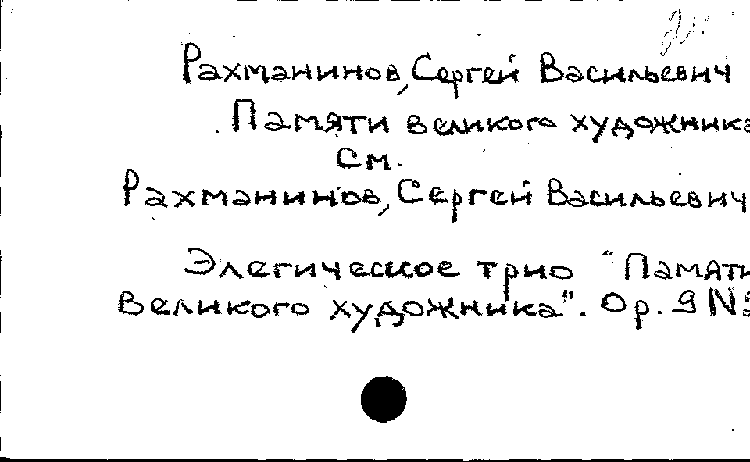 Рахманинов, Сергей Васильевич
Памяти великого художника
См.
Рахманинов, Сергей Васильевич
Элегическое трио "Памяти
Великого художника". Ор. 9 N